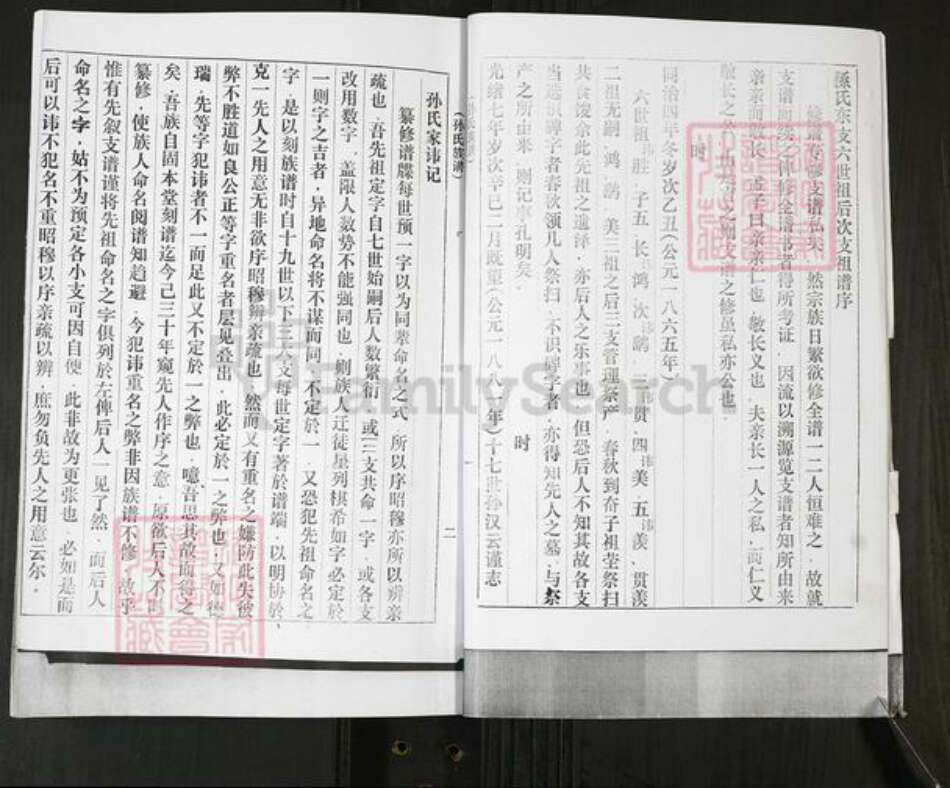 孫氏东支六世祖后次支祖谱序
修谱专修支谱也矣 然宗族日繁欲修全谱一二人恒难之 故就
支谱而续之俾修全谱书者得所考证 因流以溯源览支谱者知所由来
亲亲而敬长 孟子曰亲亲仁也 敬长义也 夫亲长一人之私 而仁义
敬长之 则支谱之修虽私亦公也
时
同治四年冬岁次乙丑(公元一八六五年)
六世祖讳胜 子五 长讳鸿 次讳鹉 三讳贯 四讳美 五讳羡 贯羡
二祖无嗣 鸿 鹉 美三祖之后三支管理祭产 春秋到奇子祖茔祭扫
共食馂余此先祖之遗泽 亦后人之乐事也 但恐后人不知其故各支
当选识碑字者春秋领儿人祭扫 不识碑字者 亦得知先人之墓 与祭
产之所由来 则记事孔明矣
时
光绪七年岁次辛巳二月既望(公元一八八一年)十七世孙汉云谨志
(孙氏族谱)
孙氏家讳记
纂修谱牒每世预一字以为同辈命名之式 所以序昭穆亦所以辨亲
疏也 吾先祖定字自七世始嗣后人数繁衍 或二三支共命一字 或各支
改用数字 盖限人数势不能强同也 则族人迁徒星列棋希如字必定於
一则字之吉者 异地命名将不谋而同 不定於一 又恐犯先祖命名之
字 是以刻族谱时自十九世以下三大支每世定字著於谱端 以明协於
克一先人之用意无非欲序昭穆辨亲疏也 然而又有重名之嫌防此失彼
弊不胜道如良公正等字重名者层见叠出 此必定於一之弊也 又如德
瑞 先等字犯讳者不一而足此又不定於一之弊也 噫 吾思其故而得之
矣 吾族自固本堂刻谱迄今己三十年窥先人作序之意 原欲后人不
纂修 使族人命名阅谱知趋避 今犯讳重名之弊非因族谱不修 故乎
惟有先叙支谱谨将先祖命名之字俱列於左俾后人一见了然 而后人
命名之字 姑不为预定各小支可因自便 此非故为更张也 必如是而
后可以讳不犯名不重昭穆以序亲疏以辨 庶勿负先人之用意云尔
二
FamilySearch